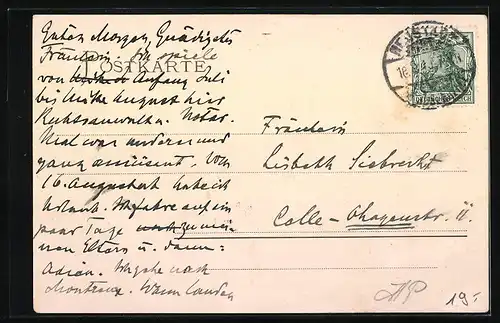 Guten Morgen, Gnädigstes
Fräulein. Ich spiele
POSTKARTE
von Anfang Juli
bis Mitte August hier
Rechtsanwalt u. Notar.
Mal was anderes und
ganz amüsant. Vom
16. August ab habe ich
Urlaub. Ich fahre auf ein
paar Tage zu mei-
nen Eltern u. dann:
Adieu. Ich gehe nach
Montreux. Wann landen
Fräulein
Lisbeth Siebrecht
Celle
19.-